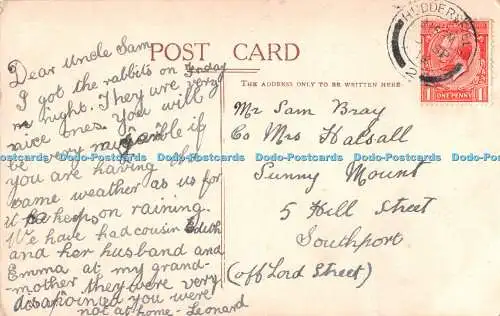 POST CARD
THE ADDRESS ONLY TO BE WRITTEN HERE.
Dear Uncle Sam
I got the rabbits on Friday
night. They are very
nice ones. You will
be very if
you are having the
same weather as us for
it keeps on raining.
We have had cousin Edith
and her husband and
Emma at my grand-
-mother they were very
disapointed you were
not at home - Leonard
Mr Sam Bray
Co Mrs Halsall
Sunny Mount
5 Hill Street
Southport
(off Lord Street)
HUDDERSFIELD
ONE PENNY
1 1
Postcards Postcards Postcards Postcards Postcards Postcards